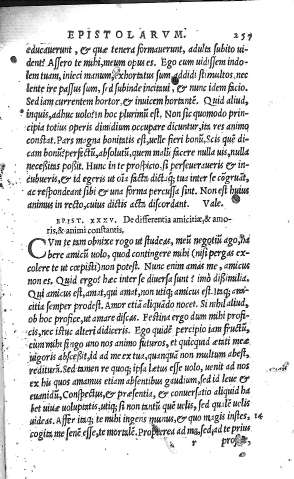 EPISTOLARVM. 259
educauerunt, & quæ tenera formauerunt, adulta subito ui-
dent? Assero te mihi, meum opus es. Ego cum uidissem indo-
lem tuam, inieci manum, exhortatus sum, addidi stimulos, nec
lente ire passus sum, sed subinde incitaui, & nunc idem facio.
Sed iam currentem hortor, & inuicem hortantem. Quid aliud,
inquis, adhuc uolo? in hoc plurimum est. Non sic quomodo prin-
cipia totius operis dimidium occupare dicuntur, ita res animo
constat. Pars magna bonitatis est, uelle fieri bonum. Scis quē di-
cam bonū? perfectū, absolutū, quem malū facere nulla uis, nulla
necessitas possit. Hunc in te prospicio, si perseueraueris & in-
cubueris, & id egeris ut oīa facta dictaq́; tua inter se cōgruāt,
ac respondeant sibi & una forma percussa sint. Non est huius
animus in recto, cuius dictis acta discordant. Vale.
EPIST. XXXV. De differentia amicitiæ, & amo-
ris, & animi constantis,
CVm te tam obnixe rogo ut studeas, meū negotiū ago, ha
bere amicū uolo, quod contingere mihi (nisi pergas ex-
colere te ut cœpisti) non potest. Nunc enim amas me, amicus
non es. Quid ergo? hæc inter se diuersa sunt? imò dissimilia.
Qui amicus est, amat, qui amat, non utiq; amicus est. itaq; ami-
citia semper prodest. Amor etiā aliquando nocet. Si nihil aliud,
ob hoc profice, ut amare discas. Festina ergo dum mihi profi-
cis, nec istuc alteri didiceris. Ego quidē percipio iam fructū,
cum mihi fingo uno nos animo futuros, et quicquid ætati meæ
uigoris abscessit, id ad me ex tua, quanquā non multum abest,
rediturū. Sed tamen re quoq; ipsa lætus esse uolo, uenit ad nos
ex his quos amamus etiam absentibus gaudium, sed id leue &
euanidū, Conspectus, & præsentia, & conuersatio aliquid ha
bet uiuæ uoluptatis, utiq; si non tantū quē uelis, sed qualē uelis
uideas. Affer itaq; te mihi ingens munus, & quo magis instes, 14
cogita me senē esse, te mortalē. Propera ad me, sed ad te prius
r